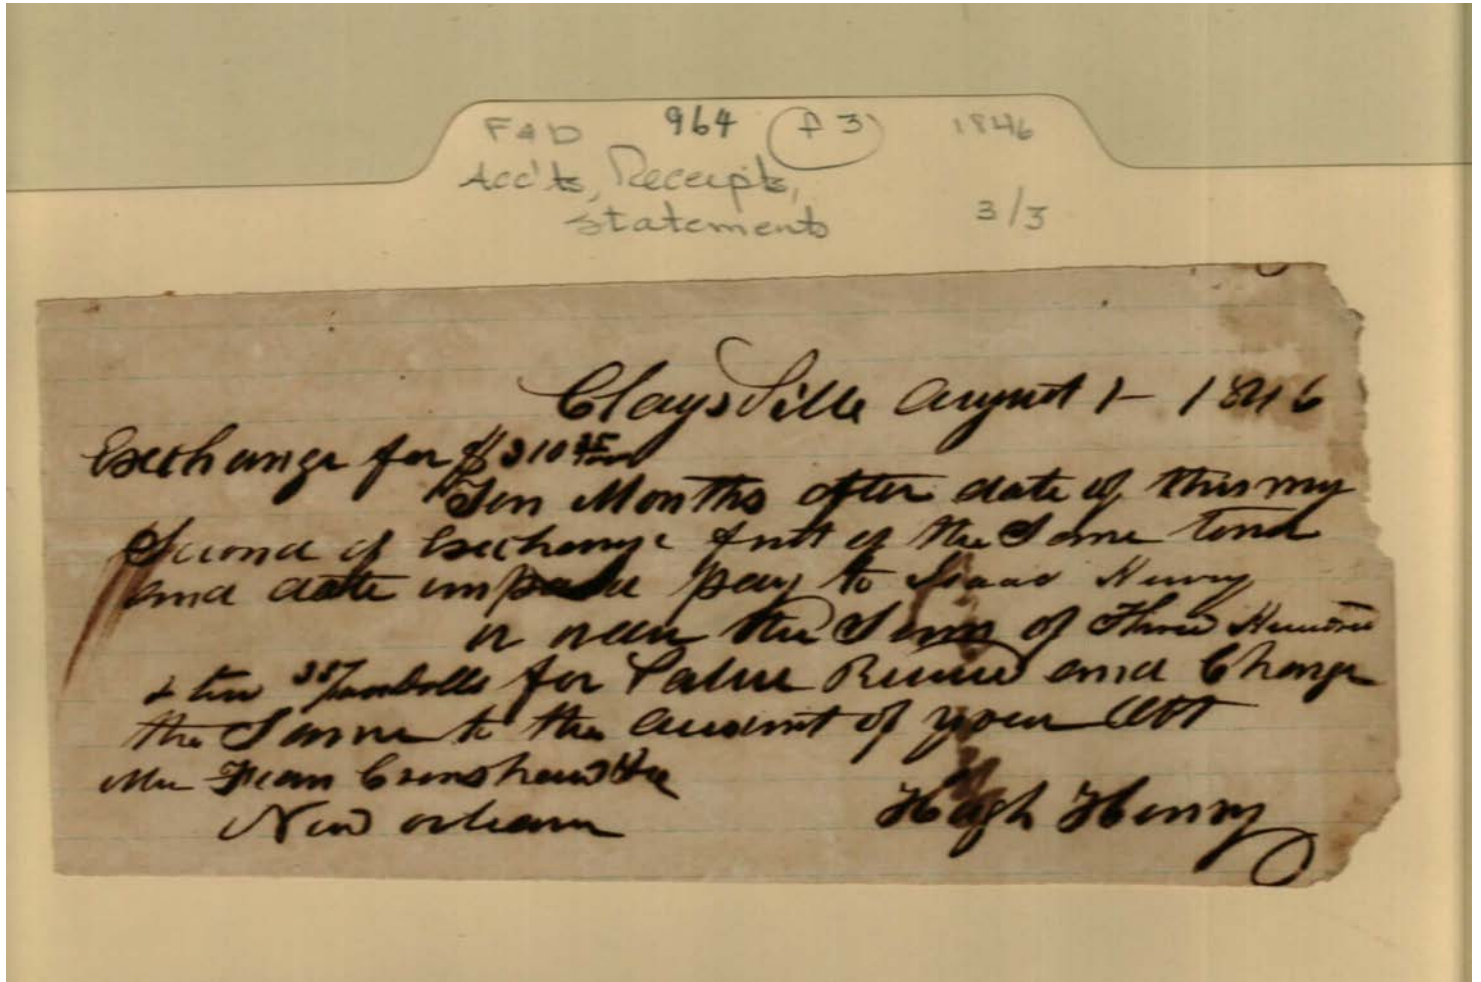 F&D 964 (f 3) 1846
Acc'ts, Receipts,
Statements 3/3
ClaysVille August 1- 1846
Exchange for $310 35/100
Ten Months after date of this my
Second of Exchange first of the Same tenor
and date unpaid pay to Isaac Henry
or order the Sum of Three Hundred
& ten 35/100 Dolls for Value Received and Charge
the Same to the account of your Obt
Mr Crenshaw & Co
New orleans Hugh Henry